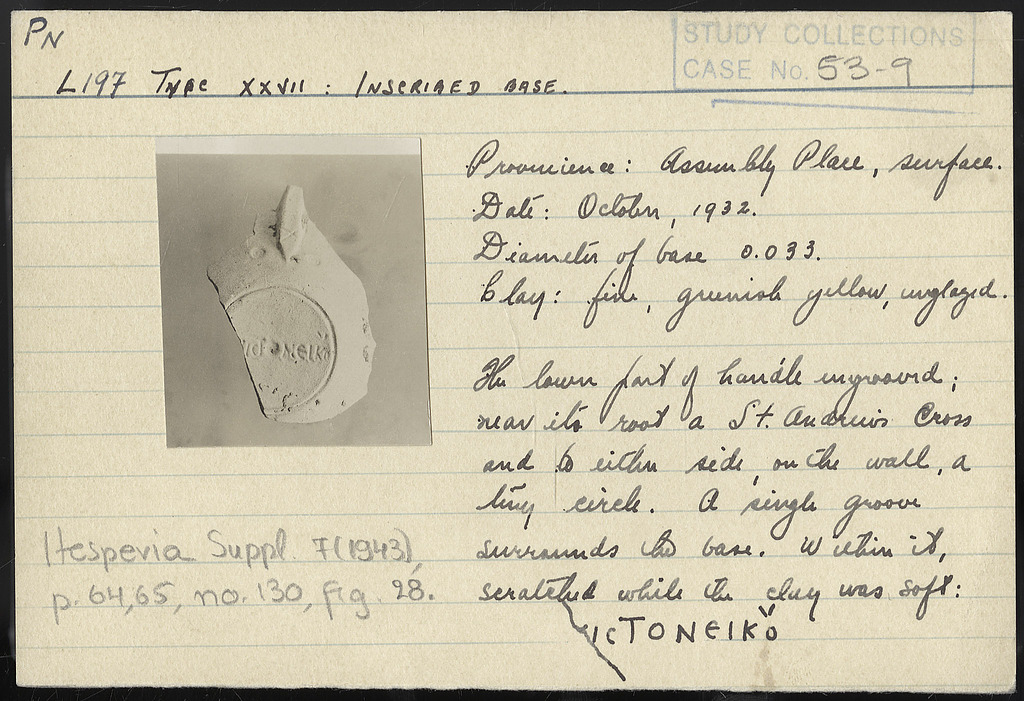 PN
STUDY COLLECTIONS
CASE No. 53-9
L197 Type XXVII : INSCRIBED BASE.
Provenience: Assembly Place, surface.
Date: October, 1932.
Diameter of base 0.033.
Clay: fine, greenish yellow, unglazed.
ICTONEIKO
The lower part of handle engrooved;
near its root a St. Andrew's Cross
and to either side, on the wall, a
tiny circle. A single groove
surrounds the base. Within it,
scratched while the clay was soft:
ICTONEIKŎ
Hesperia Suppl. 7(1943),
p. 64,65, no. 130, fig. 28.